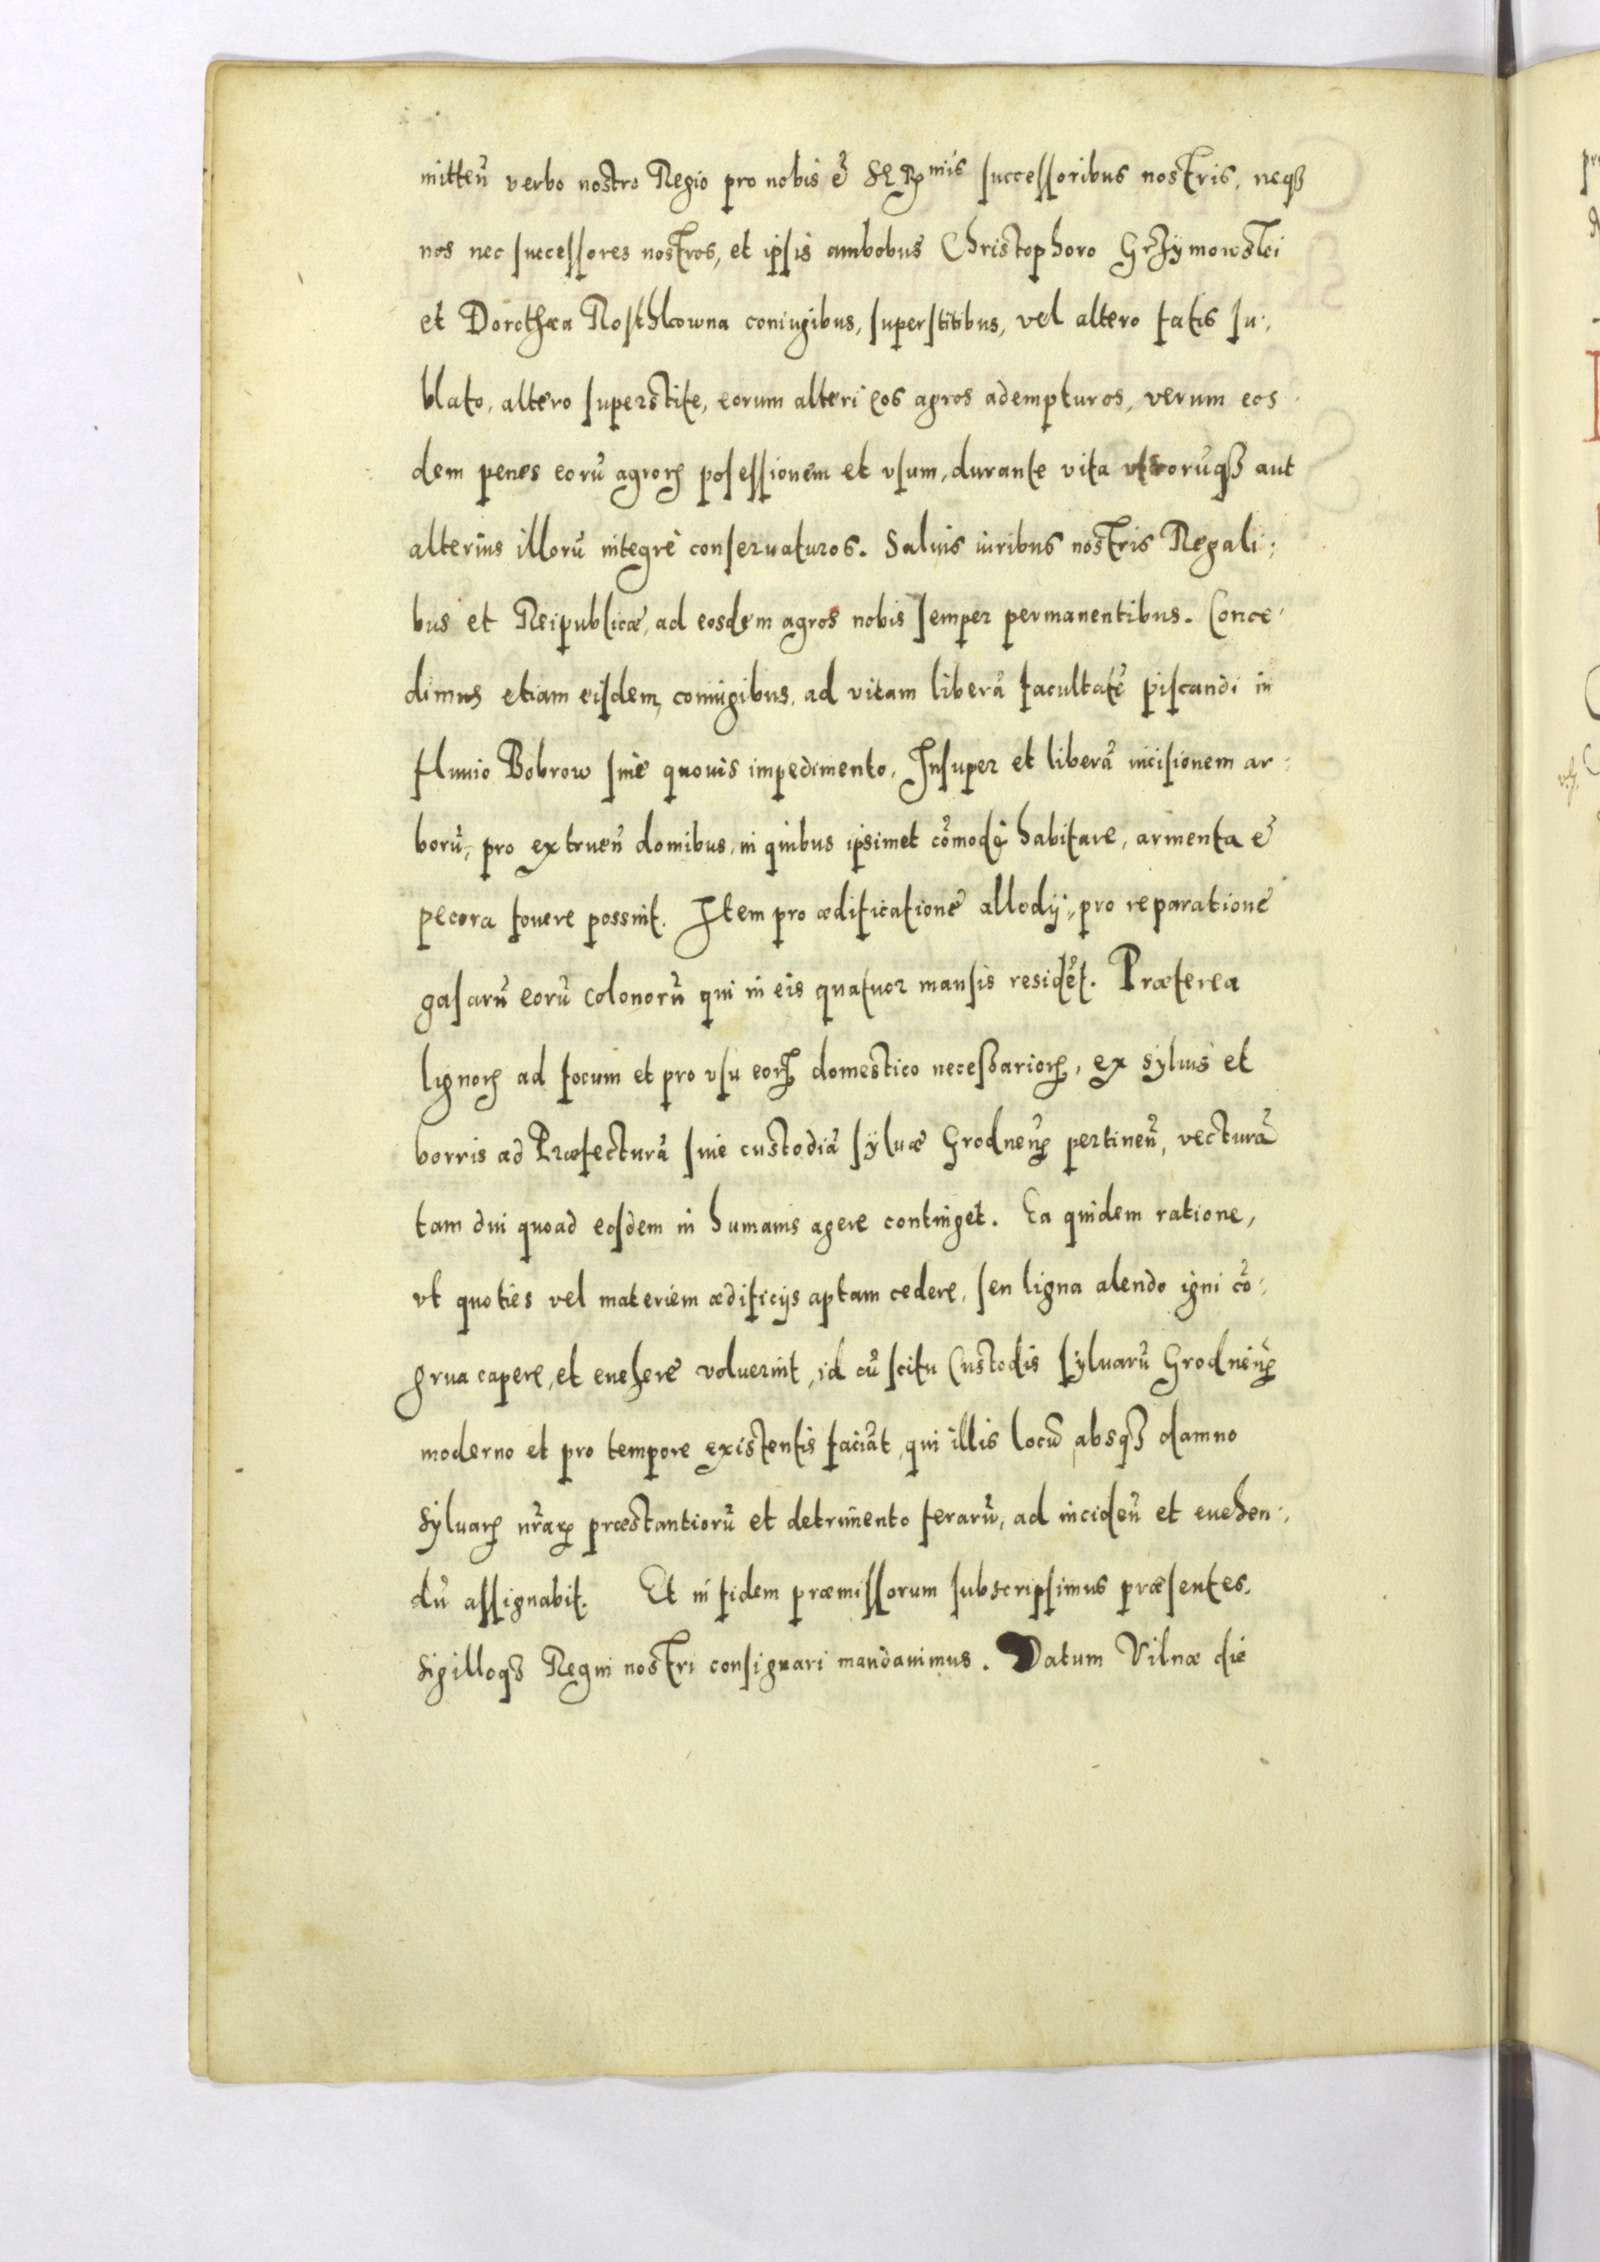 mitteñ verbo nostro Regio pro nobis et Sere^mis successoribus nostris, neqꝫ
nos nec successores nostros, et ipsis ambobus Christophoro Grzymowskei
et Dorothæa Rosthkowna coniugibus, superstitibus, vel altero fatis su:
blato, altero superstite, eorum alteri eos agros adempturos, verum eos
dem penes eorũ agroꝝ posessionem et vsum, durante vita vtrorũqꝫ aut
alterius illorũ integrè conseruaturos. Saluis iuribus nostris Regali:
bus et Reipublicæ, ad eosdem agros nobis semper permanentibus. Conce:
dimus etiam eisdem coniugibus, ad vitam liberã facultatẽ piscandi in
fluuio Bobrow sine quouis impedimento. Insuper et liberã incisionem ar:
borũ, pro extrueñ domibus, in quibus ipsimet cõmodè habitare, armenta et
pecora fouere possint. Item pro ædificatione allodij, pro reparatione
gasarũ eorũ colonorũ qui in eis quatuor mansis residẽt. Præterea
lignoꝝ ad focum et pro vsu eoꝝ domestico necessarioꝝ, ex syluis et
borris ad Præfecturã siue custodiã syluæ Grodneñ pertineñ, vecturã
tam diu quoad eosdem in humanis agere continget. Ea quidem ratione,
vt quoties vel materiem ædificijs aptam cedere, seu ligna alendo igni cõ:
grua capere, et euehere voluerint, id cũ scitu Custodis syluarũ Grodneñ
moderno et pro tempore existentis faciãt, qui illis locũ absqꝫ damno
syluaꝝ nr̃aꝝ præstantiorũ et detrimento ferarũ, ad incideñ et euehen:
dũ assignabit. Et in fidem præmissorum subscripsimus præsentes,
sigilloqꝫ Regni nostri consignari mandauimus. Datum Vilnæ die